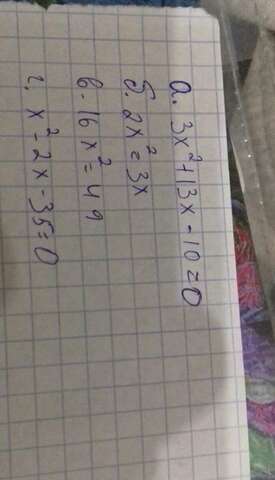 а. 3x²+13x-10=0
б. 2x²=3x
в. 16x²=49
г. x²-2x-35=0